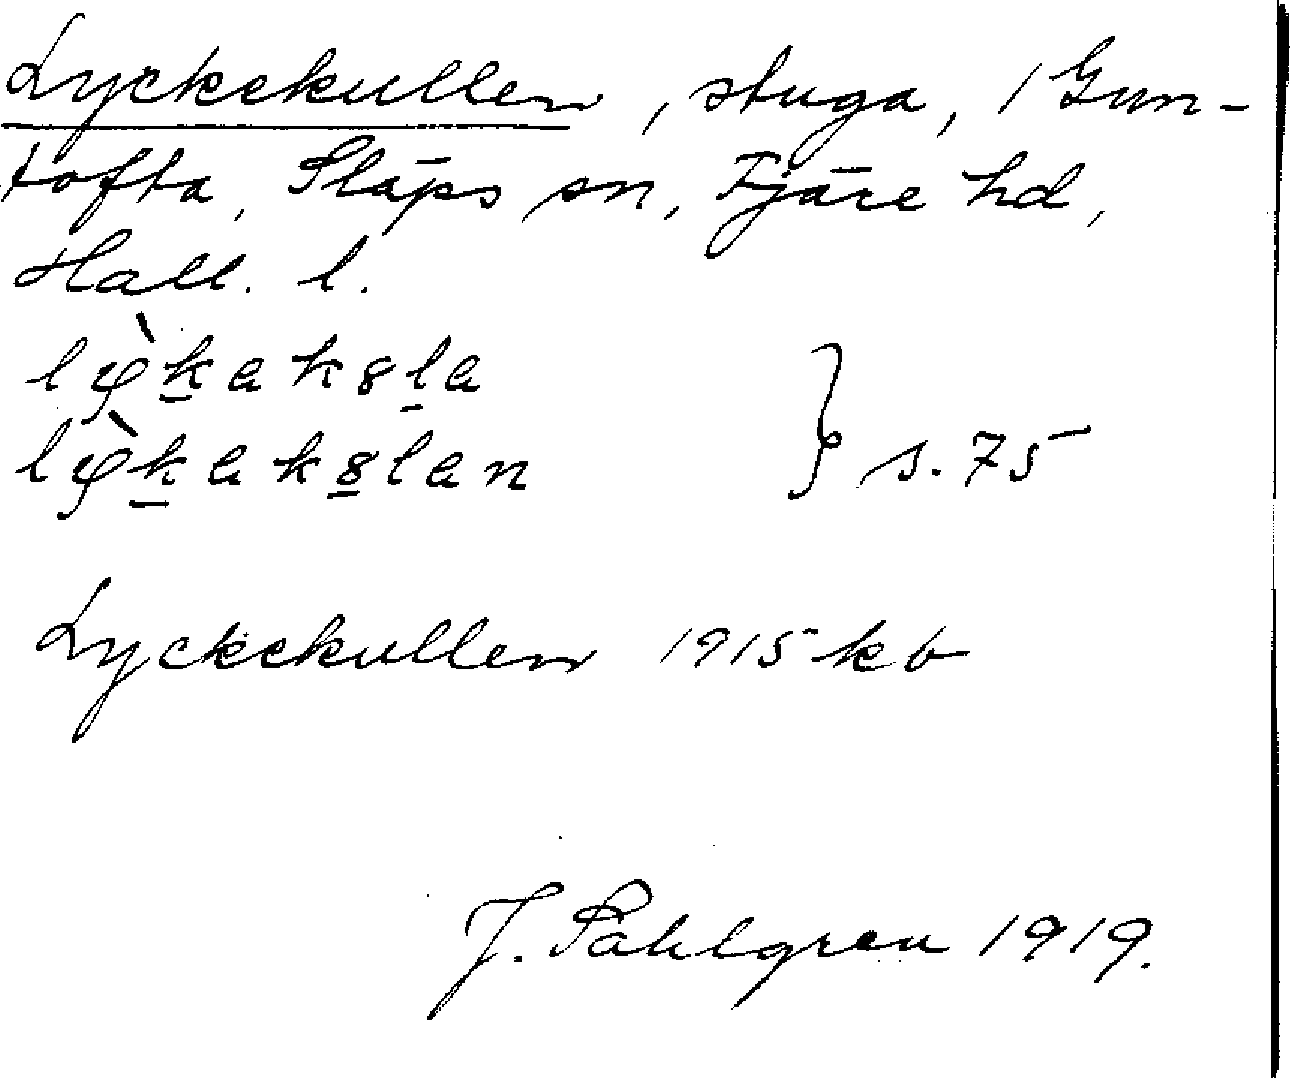 Lyckekullen, stuga, 1 Gun-
tofta, Släps sn, Fjäre hd,
Hall. l.
lỳk̲ak8l̲a
lỳk̲ak8̲lan } s. 75
Lyckekullen 1915 kb
J. Sahlgren 1919.